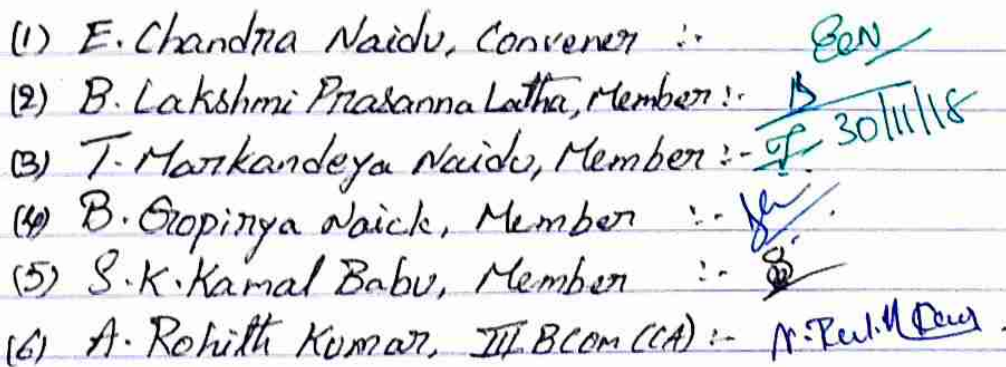 (1) E. Chandra Naidu, Convener :- ECN
(2) B. Lakshmi Prasanna Latha, Member :- B
(3) T. Markandeya Naidu, Member :- 30/11/18
(4) B. Gropinya Naick, Member :-
(5) S.K. Kamal Babu, Member :-
(6) A. Rohith Kumar, III BCOM (CA) :-